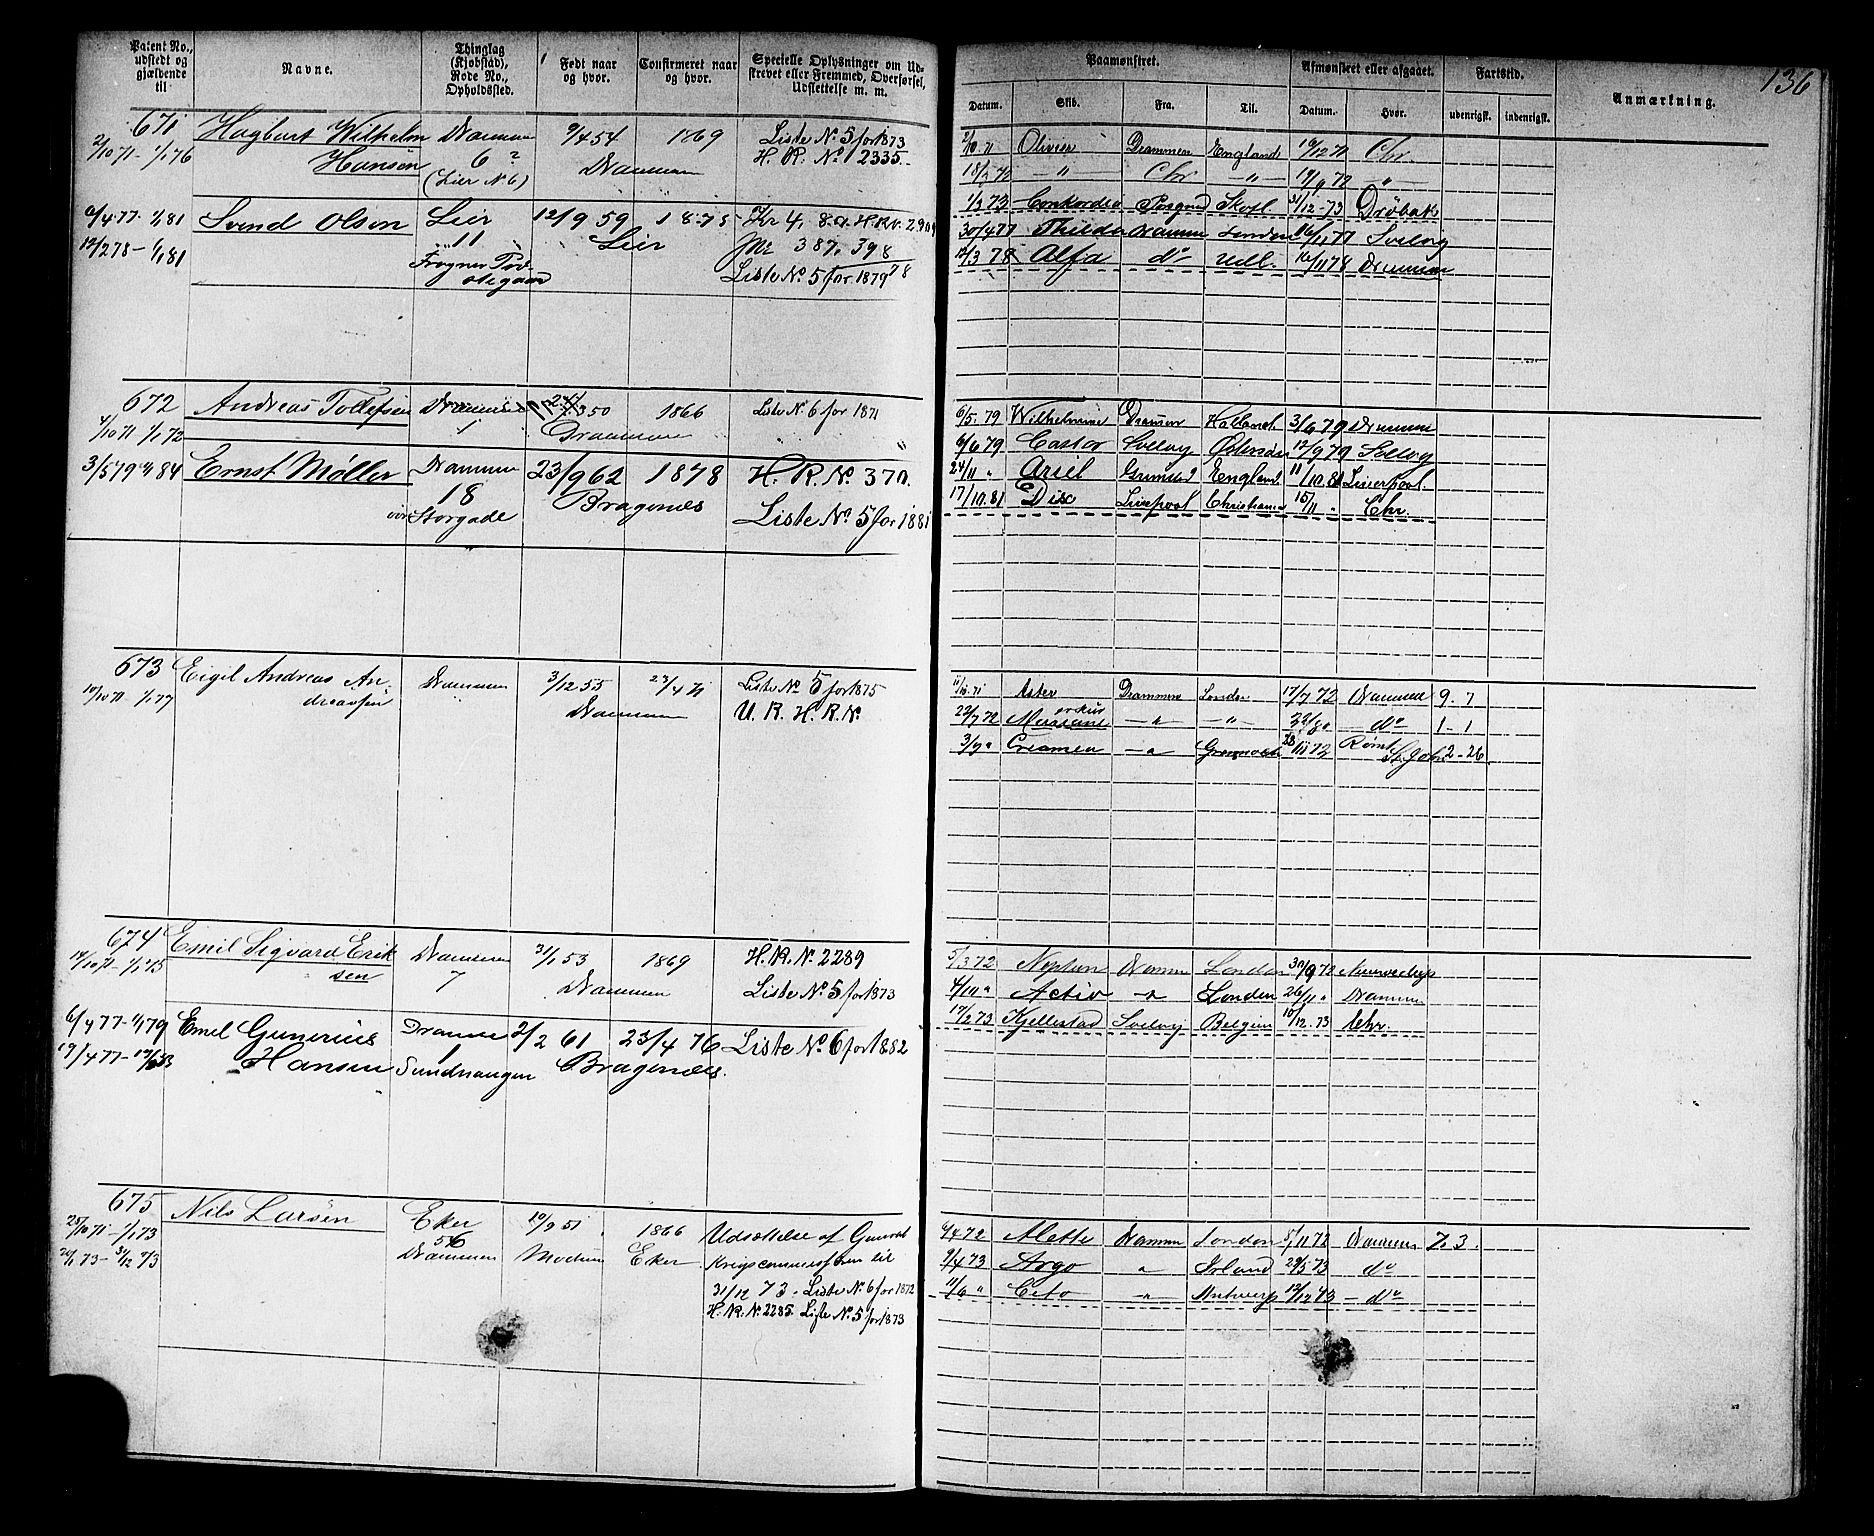 136
Patent No., udstedt og gjældende til
Navne.
Thinglag (Kjøbstad), Rode No., Opholdssted.
Født naar og hvor.
Confirmeret naar og hvor.
Specielle Oplysninger om Udskrevet eller Fremmed, Overførsel, Udslettelse m. m.
Paamønstret.
Datum. Skib. Fra. Til.
Afmønstret eller afgaaet.
Datum. Hvor.
Fartstid.
udenrigsk. indenrigsk.
Anmærkning.
671 Hagbart Wilhelm Drammen 9/4 54 1869 Liste No 5 for 1873
2/10 71 - 1/1 76 Hansen 6 ? Drammen H. R. No 2335.
(Lier No 6)
6/4 77 - 1/1 81 Svend Olsen Lier 12/9 59 1875
12/2 78 - 1/1 81 11 Lier 387, 398
Frogner
Liste No 5 for 1879
2/10 71 Olivier Drammen England 19/12 71 Chr
18/2 72 — " — Chr — " — 19/9 72 "
1/3 73 Conkordia Skotl 31/12 73 Drøbak
30/4 77 Thilda Drammen London 16/11 77 Svelvig
12/3 78 Alfa do Udl. 16/11 78 Drammen
672 Andreas Tollefsen Drammen 50 1866 Liste No 6 for 1871
4/10 71 - 1/1 72 1 Drammen
3/5 79 84 Ernst Møller Drammen 23/9 62 1878 H. R. No 370.
18 Bragernes
Storgade Liste No 5 for 1881
6/5. 79 Wilhelmine Drammen Holland 3/6 79 Drammen
6/6 79 Castor Svelvig 12/9 79 Svelvig
24/11 " Ariel Grimstad England 11/10. 81 Liverpool.
17/10. 81 Disc Liverpool Christiania 15/11 " Chr.
673 Eigil Andreas An- Drammen 3/12 55 23/4 71 Liste No 5 for 1875
10/10 71 - 1/1 77 dreassen Drammen U. R. H. R. No
11/10. 71 Aster Drammen London 17/7 72 Drammen 9. 7
22/7 72 — " — — " — 22/8 " — do 1 - 1
3/9 " Creamea — " 28/11 72 Rømt St. John 2 - 26
674 Emil Sigvard Erik Drammen 31/1 53 1869 H. R. No 2289
14/10 71 - 1/1 75 sen 7 Drammen Liste No 5 for 1873
6/4 77 - 1/1 79 Emil Gunerius Dramme 2/2 61 23/4 76 Liste No 6 for 1882
19/4 77 - Hansen 1 Bragernes.
Sundhaugen
5/3 72 Neptun Drammen London 30/9 72
4/10 " Activ — " London 26/11 " Drammen
17/2 73 Kjellestad Svelvig Belgien 10/12. 73 Chr.
675 Nils Larsen Eker 10/9 51 1866 Udsættelse af General
25/10 71 - 1/1 73 56 Modum Eker Krigscommissæren til
20/1 73 - 31/12 73 Drammen 31/12 73 - Liste No 6 for 1872
H. R. No 2285 Liste No 5 for 1873
6/4 72 Alette Drammen London 5/11 72 Drammen 7. 3.
9/4 73 Argo " Irland 29/5 73 do
11/6 " Ceto — " Antwerp 12/12 73 — do